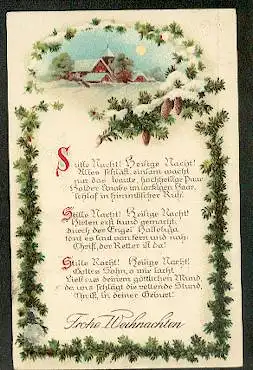 Stille Nacht! Heilige Nacht!
Alles schläft, einsam wacht
nur das traute, hochheilige Paar
Holder Knabe im lockigen Haar,
schlaf in himmlischer Ruh'.
Stille Nacht! Heilige Nacht!
Hirten erst kund gemacht,
durch der Engel Halleluja
tönt es laut von fern und nah:
Christ, der Retter ist da!
Stille Nacht! Heilige Nacht!
Gottes Sohn, o wie lacht
Lieb' aus deinem göttlichen Mund,
da uns schlägt die rettende Stund,
Christ, in deiner Geburt!
Frohe Weihnachten